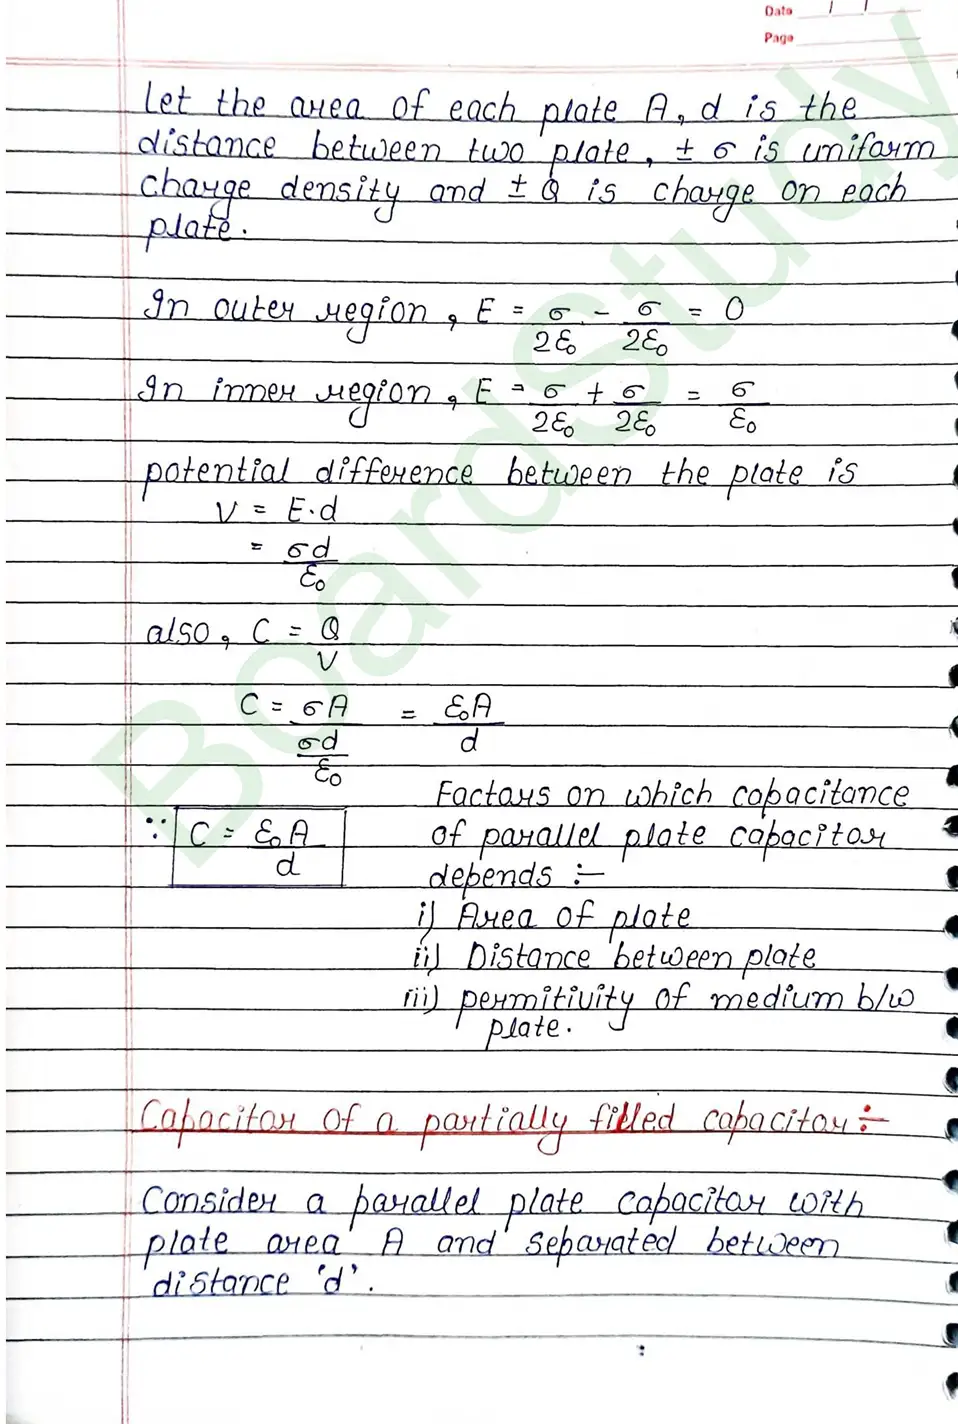 Date / /
Page
Let the area of each plate A, d is the
distance between two plate, ± σ is uniform
charge density and ± Q is charge on each
plate.
In outer region, E = σ/2ε₀ - σ/2ε₀ = 0
In inner region, E = σ/2ε₀ + σ/2ε₀ = σ/ε₀
potential difference between the plate is
V = E·d
= σd/ε₀
also, C = Q/V
C = σA/(σd/ε₀) = ε₀A/d
∵ C = ε₀A/d
Factors on which capacitance
of parallel plate capacitor
depends :-
i) Area of plate
ii) Distance between plate
iii) permitivity of medium b/w
plate.
Capacitor of a partially filled capacitor :-
Consider a parallel plate capacitor with
plate area A and separated between
distance 'd'.
BoardStudy